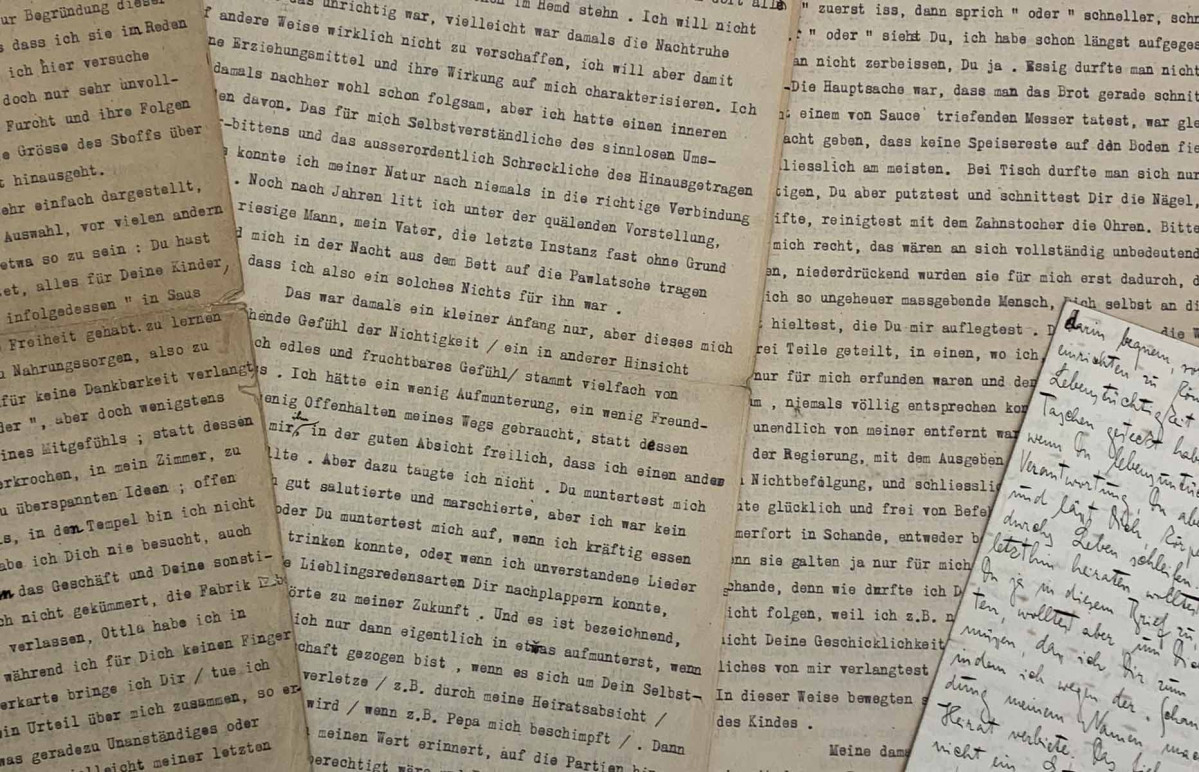 ur Begründung dieser
s dass ich sie im Reden
ich hier versuche
doch nur sehr unvoll-
Furcht und ihre Folgen
e Grösse des Stoffs über
t hinausgeht.
ehr einfach dargestellt,
Auswahl, vor vielen andern
etwa so zu sein : Du hast
et, alles für Deine Kinder,
infolgedessen " in Saus
Freiheit gehabt zu lernen
Nahrungssorgen, also zu
für keine Dankbarkeit verlangt
der ", aber doch wenigstens
ines Mitgefühls ; statt dessen
erkrochen, in mein Zimmer, zu
u überspannten Ideen ; offen
s, in den Tempel bin ich nicht
abe ich Dich nie besucht, auch
n das Geschäft und Deine sonsti-
ch nicht gekümmert, die Fabrik
verlassen, Ottla habe ich in
während ich für Dich keinen Finger
erkarte bringe ich Dir / tue ich
in Urteil über mich zusammen, so er
was geradezu Unanständiges oder
elleicht meiner letzten
im Hemd stehn . Ich will nicht
das unrichtig war, vielleicht war damals die Nachtruhe
f andere Weise wirklich nicht zu verschaffen, ich will aber damit
ne Erziehungsmittel und ihre Wirkung auf mich charakterisieren. Ich
damals nachher wohl schon folgsam, aber ich hatte einen inneren
en davon. Das für mich Selbstverständliche des sinnlosen Ums-
-bittens und das ausserordentlich Schreckliche des Hinausgetragen
konnte ich meiner Natur nach niemals in die richtige Verbindung
. Noch nach Jahren litt ich unter der quälenden Vorstellung,
riesige Mann, mein Vater, die letzte Instanz fast ohne Grund
d mich in der Nacht aus dem Bett auf die Pawlatsche tragen
dass ich also ein solches Nichts für ihn war .
Das war damals ein kleiner Anfang nur, aber dieses mich
hende Gefühl der Nichtigkeit / ein in anderer Hinsicht
ch edles und fruchtbares Gefühl/ stammt vielfach von
s . Ich hätte ein wenig Aufmunterung, ein wenig Freund-
enig Offenhalten meines Wegs gebraucht, statt dessen
mir, in der guten Absicht freilich, dass ich einen anden
llte . Aber dazu taugte ich nicht . Du muntertest mich
gut salutierte und marschierte, aber ich war kein
oder Du muntertest mich auf, wenn ich kräftig essen
trinken konnte, oder wenn ich unverstandene Lieder
e Lieblingsredensarten Dir nachplappern konnte,
örte zu meiner Zukunft . Und es ist bezeichnend,
ich nur dann eigentlich in etwas aufmunterst, wenn
chaft gezogen bist , wenn es sich um Dein Selbst-
verletze / z.B. durch meine Heiratsabsicht /
wird / wenn z.B. Pepa mich beschimpft / . Dann
meinen Wert erinnert, auf die Partien
" zuerst iss, dann sprich " oder " schneller, schn
" oder " siehst Du, ich habe schon längst aufgeges
an nicht zerbeissen, Du ja . Essig durfte man nicht
-Die Hauptsache war, dass man das Brot gerade schnit
einem von Sauce triefenden Messer tatest, war gle
acht geben, dass keine Speisereste auf den Boden fie
liesslich am meisten. Bei Tisch durfte man sich nur
tigen, Du aber putztest und schnittest Dir die Nägel,
ifte, reinigtest mit dem Zahnstocher die Ohren. Bitte
mich recht, das wären an sich vollständig unbedeutend
en, niederdrückend wurden sie für mich erst dadurch,
ich so ungeheuer massgebende Mensch, ich selbst an di
hieltest, die Du mir auflegtest .
rei Teile geteilt, in einen, wo ich,
nur für mich erfunden waren und den
m , niemals völlig entsprechen kon
unendlich von meiner entfernt war
der Regierung, mit dem Ausgeben
Nichtbefolgung, und schliesslic
te glücklich und frei von Befe
merfort in Schande, entweder b
nn sie galten ja nur für mich
chande, denn wie durfte ich D
icht folgen, weil ich z.B. n
icht Deine Geschicklichkeit
liches von mir verlangtest
In dieser Weise bewegten s
des Kindes .
Meine dam
einrichten zu
Lebenstüchtigkeit
Taschen gesteckt hab
wenn Du lebensuntü
Verantwortung, Du
und lässt Dich
durchs Leben schleifen
letzthin heiraten wolltest
Du ja in diesem Brief zu
ten, wolltest aber um Di
müssen dass ich Dir zum
indem ich wegen der
dung meinem Namen ma
Heirat verbiete. Das
nicht ein